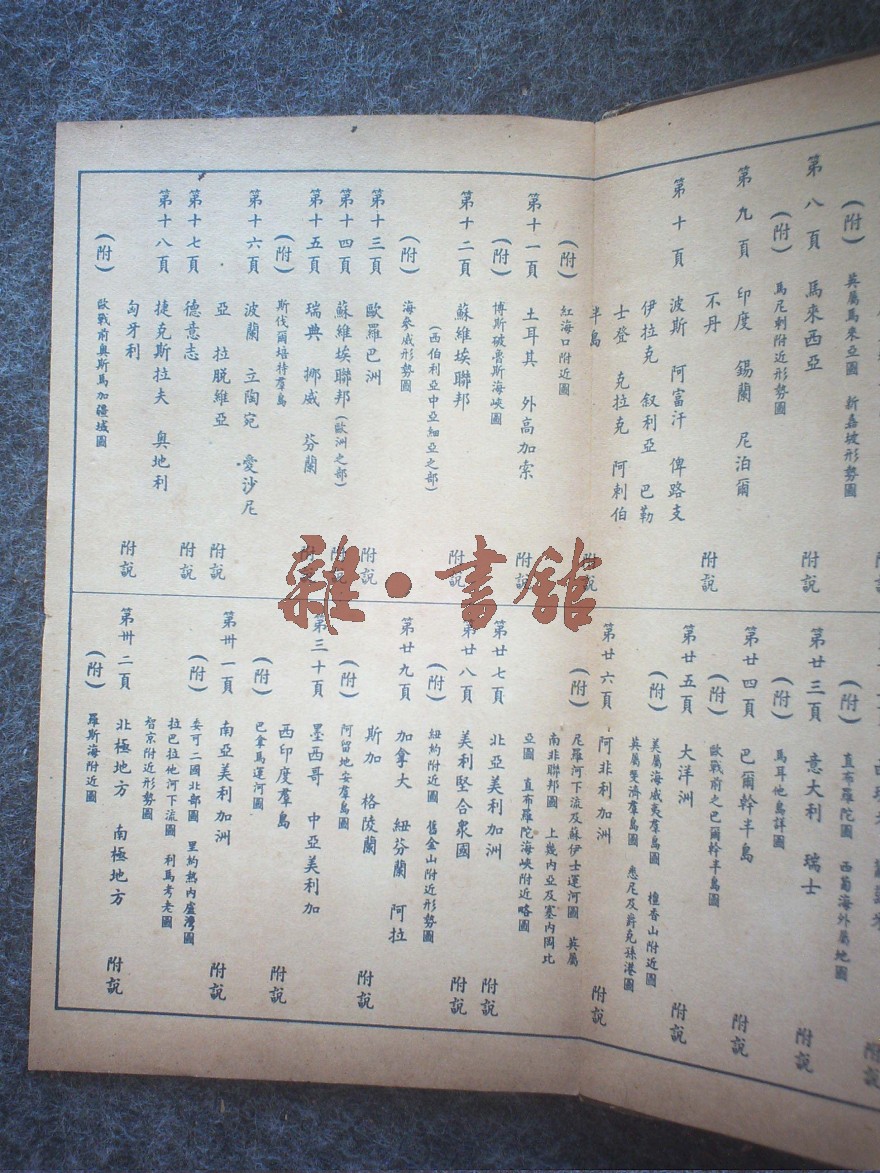 (附) 英屬馬來亞圖 新嘉坡形勢圖
第八頁 馬來西亞 附說
(附) 馬尼剌附近形勢圖
第九頁 印度 錫蘭 尼泊爾
不丹 附說
第十頁 波斯 阿富汗 俾路支
伊拉克 叙利亞 巴勒
士登 克拉克 阿剌伯
半島 附說
(附) 紅海口附近圖
第十一頁 土耳其 外高加索 附說
(附) 博斯破魯斯海峽圖
第十二頁 蘇維埃聯邦 附說
(西伯利亞中亞細亞之部)
(附) 海參威形勢圖
第十三頁 歐羅巴洲 附說
第十四頁 蘇維埃聯邦(歐洲之部) 附說
第十五頁 瑞典 挪威 芬蘭 附說
(附) 斯伐爾培特羣島
第十六頁 波蘭 立陶宛 愛沙尼
亞 拉脫維亞 附說
第十七頁 德意志 附說
第十八頁 捷克斯拉夫 奧地利
匈牙利 附說
(附) 歐戰前奧斯馬加疆域圖
(附) 直布羅陀圖 西葡海外屬地圖
第廿三頁 意大利 瑞士 附說
(附) 馬耳他島詳圖
第廿四頁 巴爾幹半島 附說
(附) 歐戰前之巴爾幹半島圖
第廿五頁 大洋洲 附說
(附) 美屬海威夷羣島圖 檀香山附近圖
英屬雙濟羣島圖 悉尼及爵克孫港圖
第廿六頁 阿非利加洲 附說
(附) 尼羅河下流及蘇伊士運河圖 英屬
南非聯邦圖 上幾內亞及塞內岡比
亞圖 直布羅陀海峽附近略圖
第廿七頁 北亞美利加洲 附說
第廿八頁 美利堅合衆國 附說
(附) 紐約附近圖 舊金山附近形勢圖
第廿九頁 加拿大 紐芬蘭 阿拉
斯加 格陵蘭 附說
(附) 阿留地安羣島圖
第三十頁 墨西哥 中亞美利加
西印度羣島 附說
(附) 巴拿馬運河圖
第卅一頁 南亞美利加洲 附說
(附) 委可二國北部圖 里約熱內盧灣圖
拉巴拉他河下流圖 利馬考老圖
智京附近形勢圖
第卅二頁 北極地方 南極地方 附說
(附) 羅斯海附近圖
雜·書館